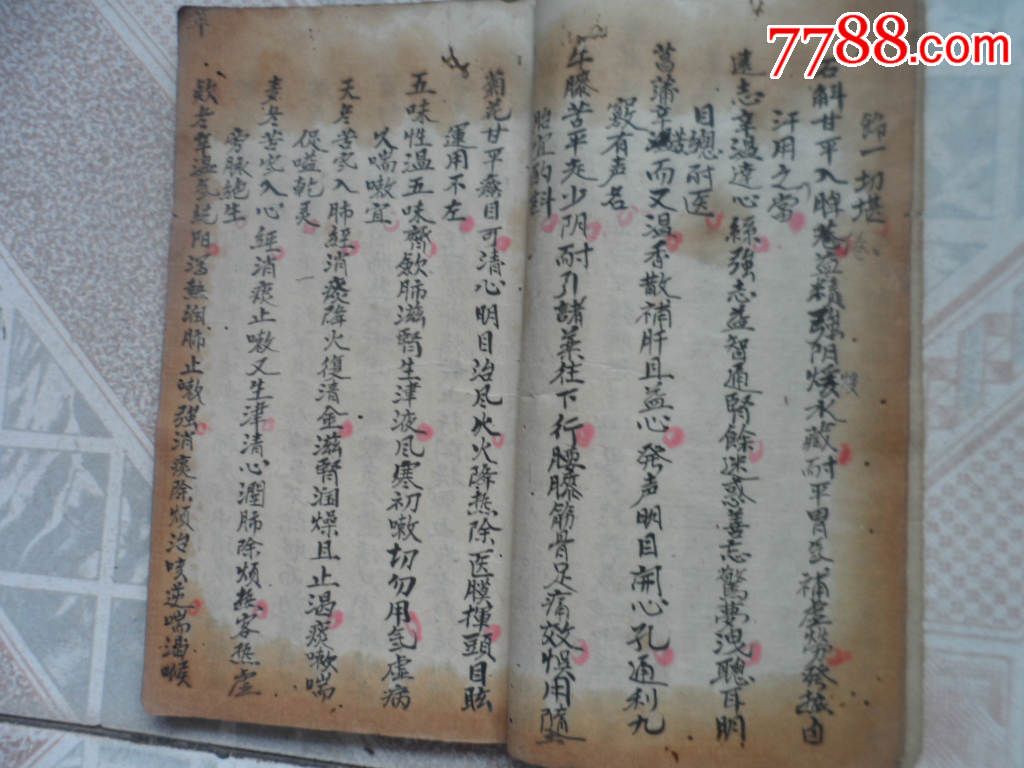 7788.com
餘一切堪
石斛甘平入脾卷益精強阴煖水藏耐平胃氣補虚勞發热自
汗用之當
遠志辛温達心絲強志益智通腎餘迷惑善忘驚夢洩聰耳明
目總耐医
菖蒲辛温而又温香散補肝且益心發声明目開心孔通利九
竅有声名
牛膝苦平走少阴耐引諸药往下行腰膝筋骨足痛效惧用隨
胎宜的斟
菊花甘平療目可清心明目治風火火降热除医膜揮頭目眩
運用不左
五味性温五味齊歛肺滋腎生津液風寒初嗽切勿用氣虚病
久喘嗽宜
天冬苦寒入肺經消痰降火復清金滋腎润燥且止渴痰嗽喘
促嗌乾灵
麦冬苦寒入心經消痰止嗽又生津清心潤肺除煩热客热虚
旁脈絕生
款冬辛温氣純阳潤肺止嗽强消痰除煩治咳逆喘渴喉